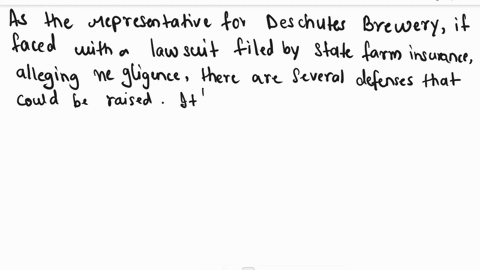 As the representative for Deschutes Brewery, if
faced with a lawsuit filed by State farm insurance,
alleging negligence, there are several defenses that
could be raised. It'